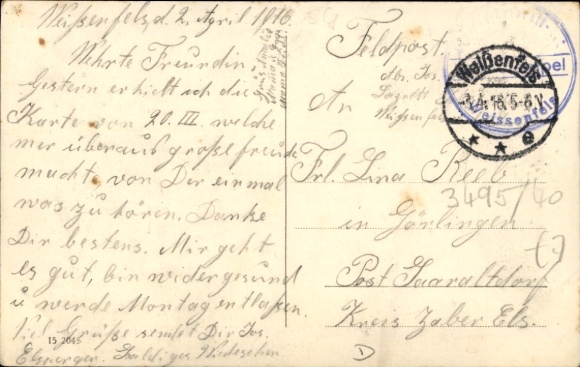 Weißenfels, d. 2. April 1916.
Wehrte Freundin,
Gestern erhielt ich die
Karte von 20. III. welche
mer überaus große freude
macht, von Dir einmal
was zu hören. Danke
Dir bestens. Mir geht
es gut, bin wider gesund
u werde Montag entlaßen.
Viel Grüße sendet Dir Jos.
Baldiges Wiedesehen
15 2045
Feldpost.
Abs. Jos.
Lazarett
Weissenfels
An
Weißenfels
3.4.16. 5-6 V.
* * e
Weissenfels
Frl. Lina Reeb
3495/40
in Görlingen
Post Saaraltdorf
Kreis Zaber Els.